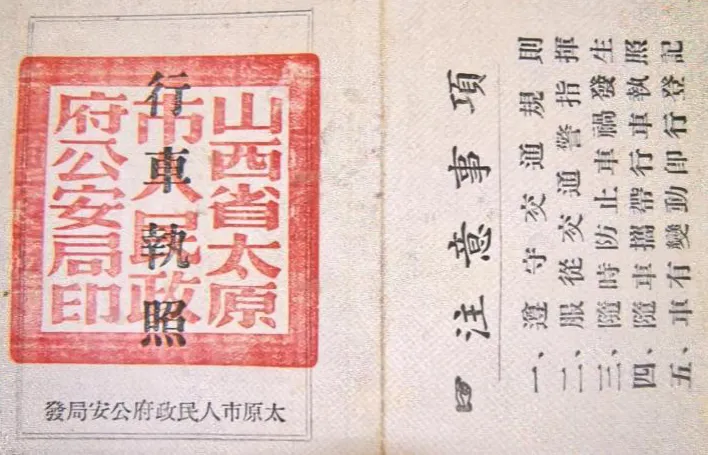 行車執照
山西省太原
市人民政
府公安局印
太原市人民政府公安局發
☞ 注意事項
一、遵守交通規則
二、服從交通警指揮
三、隨時防止車禍發生
四、隨車攜帶行車執照
五、車有變動即行登記